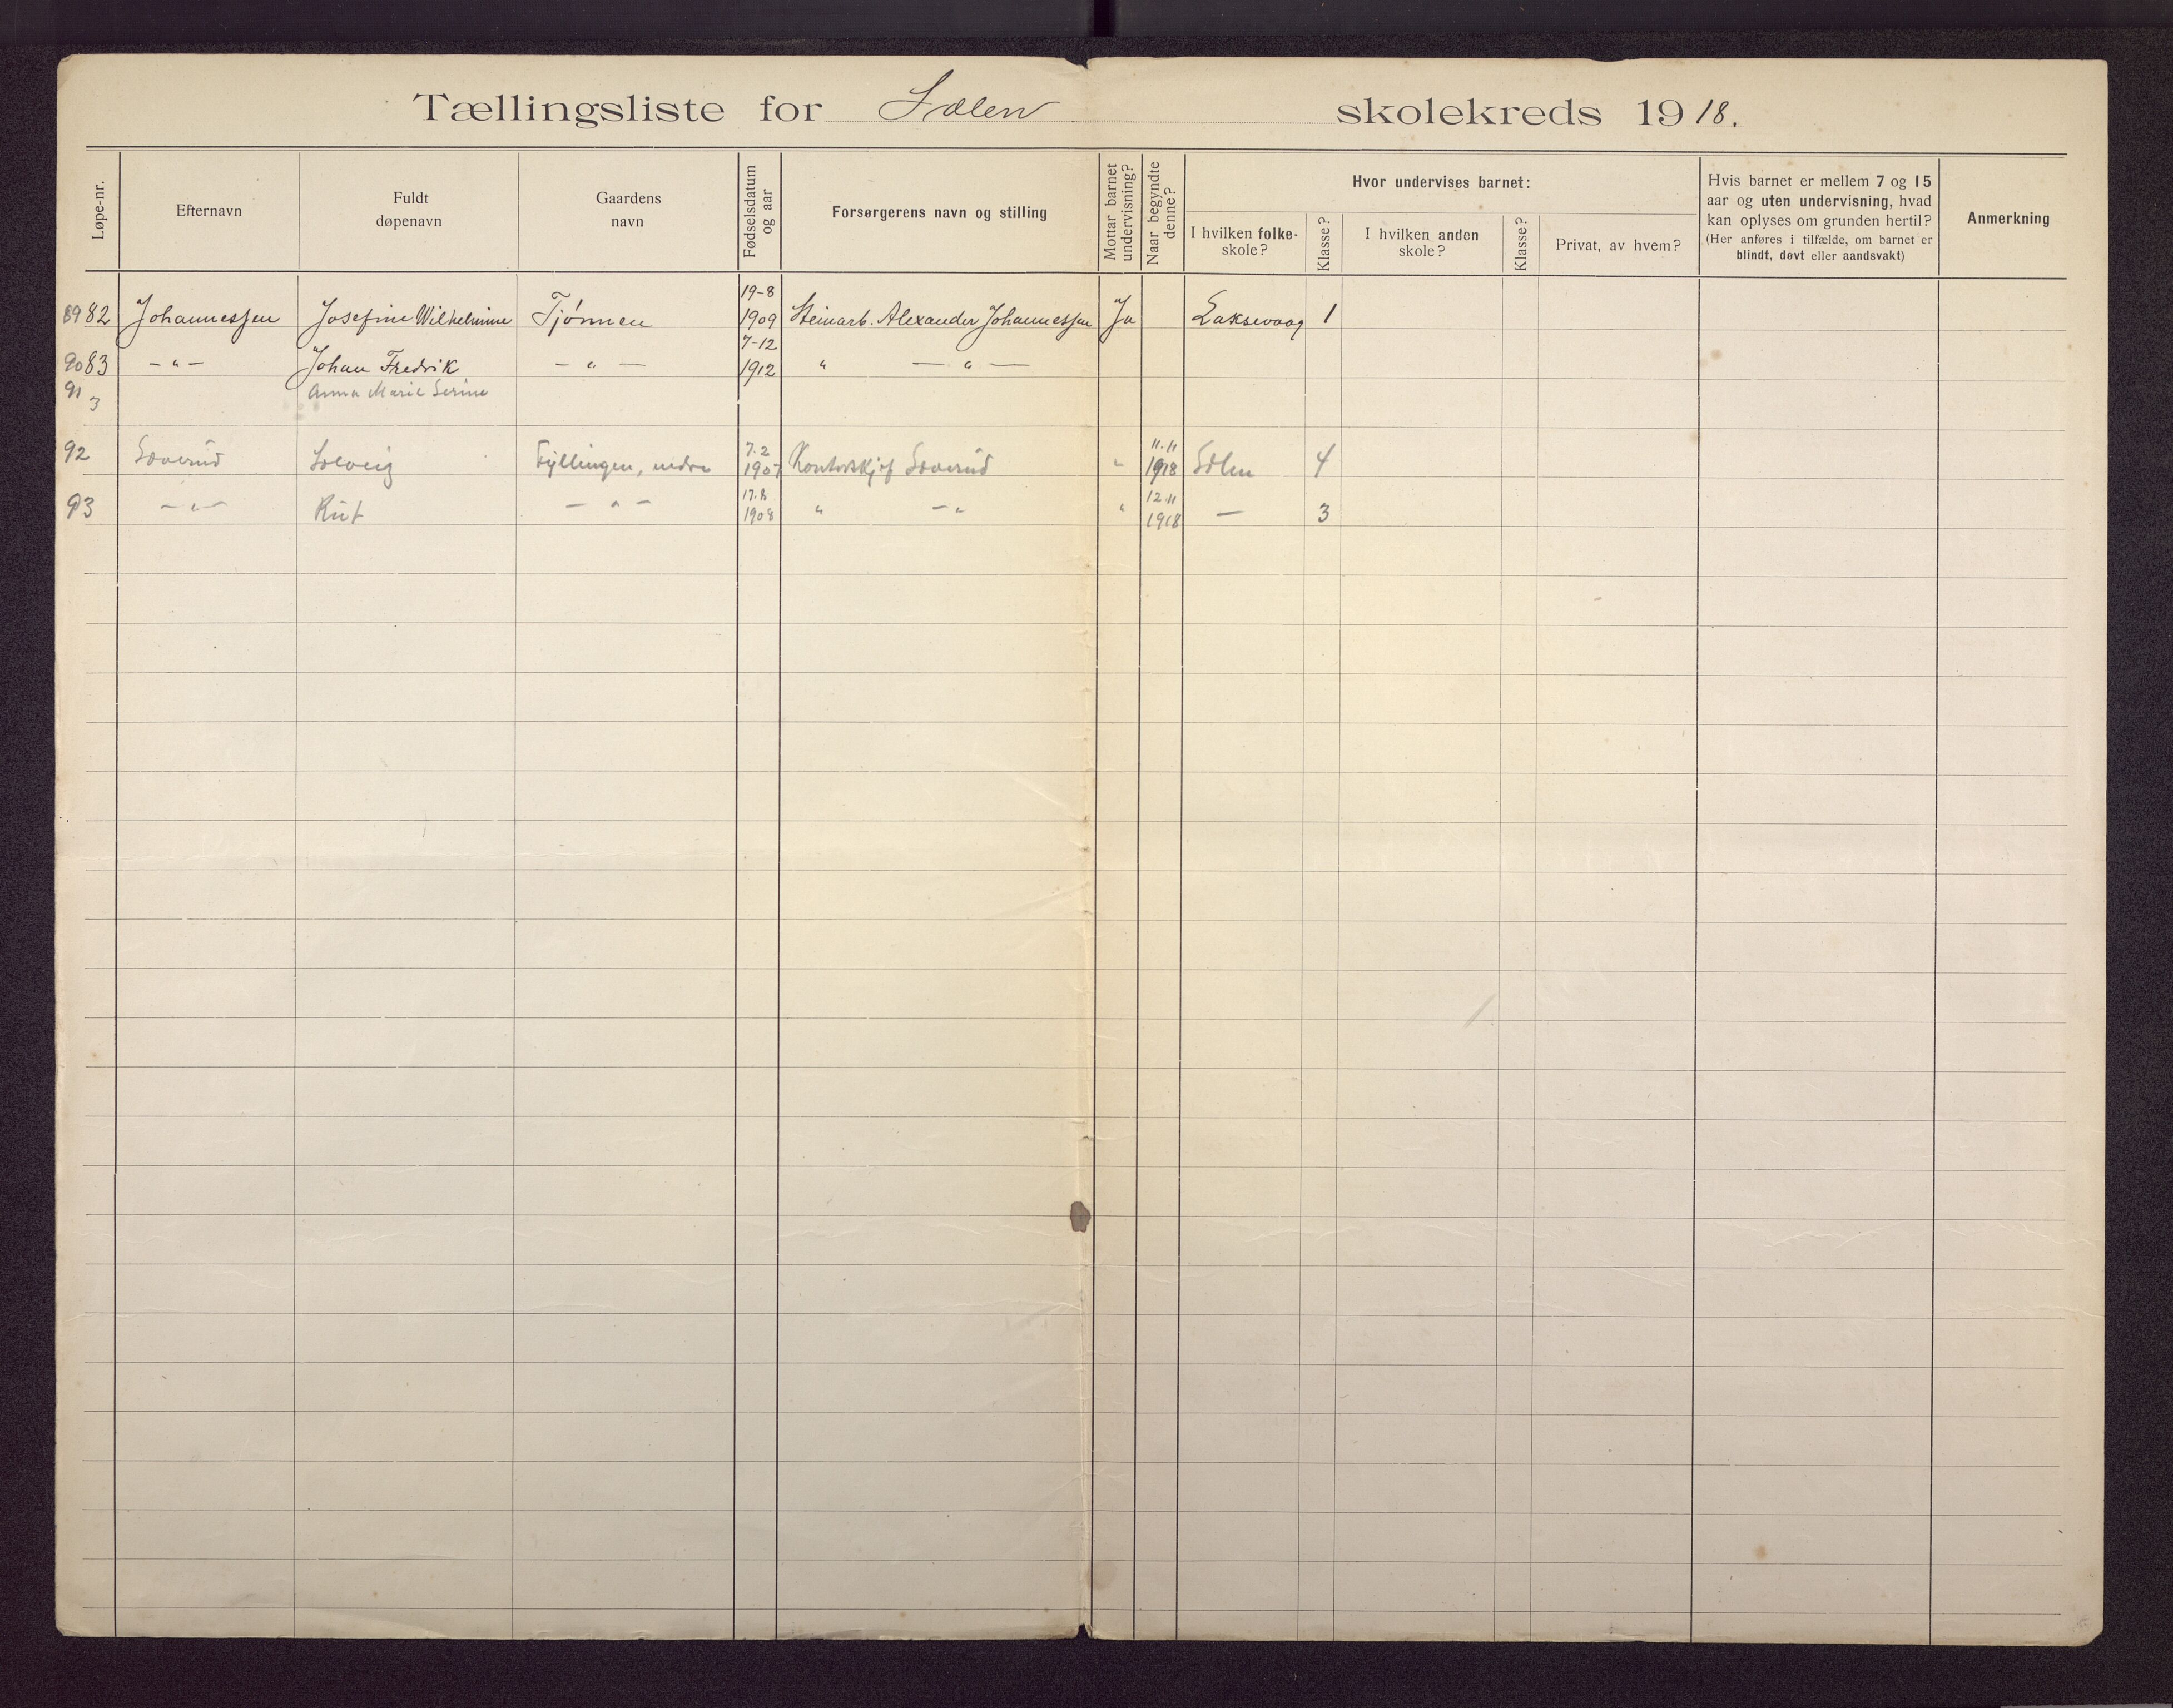 Tællingsliste for Sælen skolekreds 1918.
Løpe-nr. Efternavn Fuldt døpenavn Gaardens navn Fødselsdatum og aar Forsørgerens navn og stilling Mottar barnet undervisning? Naar begyndte denne? Hvor undervises barnet: I hvilken folke-skole? Klasse? I hvilken anden skole? Klasse? Privat, av hvem? Hvis barnet er mellem 7 og 15 aar og uten undervisning, hvad kan oplyses om grunden hertil? (Her anføres i tilfælde, om barnet er blindt, døvt eller aandsvakt) Anmerkning
89 82 Johannessen Josefine Wilhelmine Tjønnen 19-8 1909 Steinarb. Alexander Johannessen Ja Laksevaag 1
90 83 — " — Johan Fredrik — " — 7-12 1912 " — " —
91 3 Anna Marie Serine
92 Soverud Solveig Fyllingen, nedre 7.2 1907 Kontorskjef Soverud " 11.11 1918 Sælen 4
93 — " — Rut — " — 17.8 1908 " — " " 12.11 1918 — 3